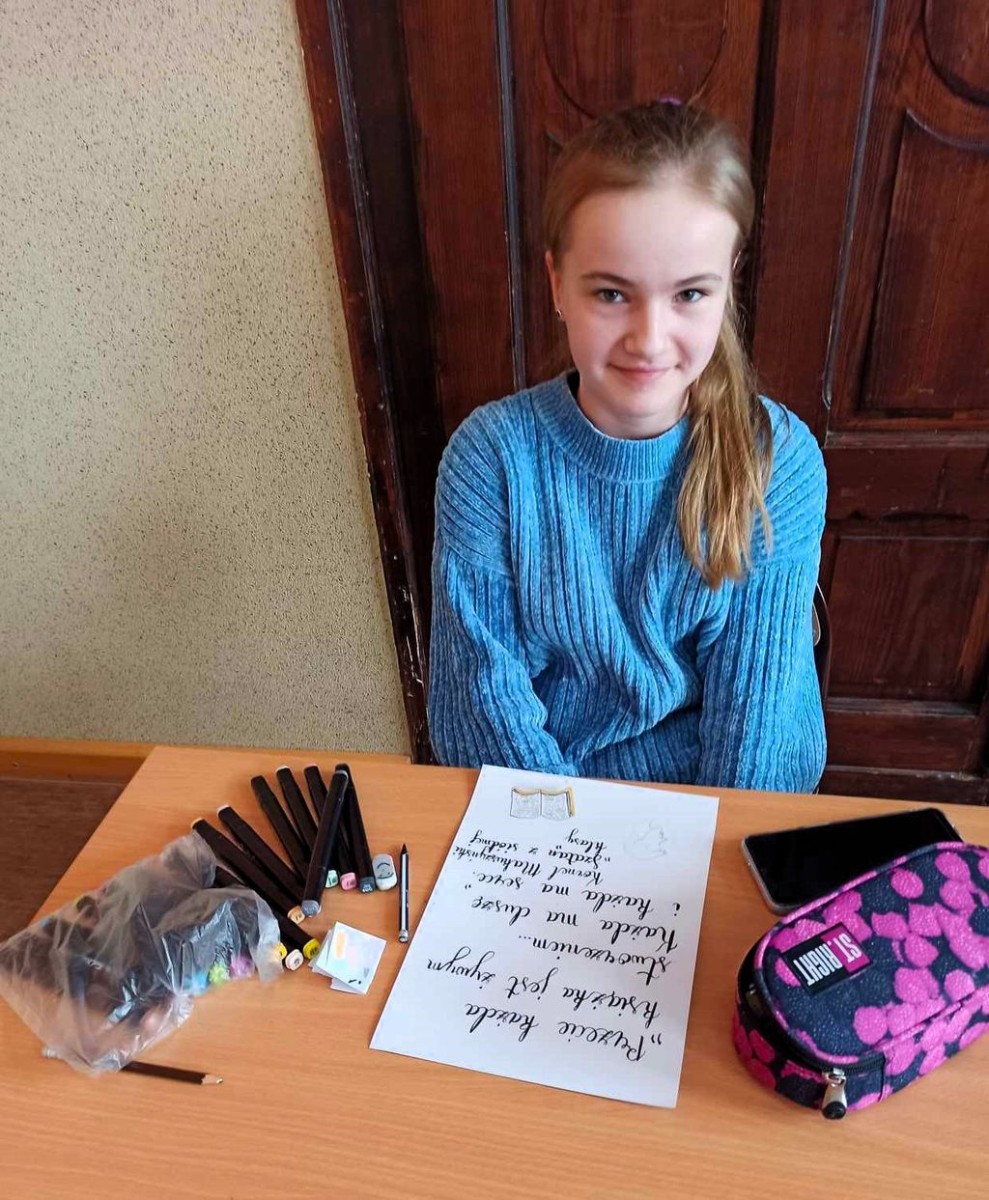 „Przecie każda
książka jest żywym
stworzeniem...
Każda ma duszę
i każda ma serce.”
Kornel Makuszyński
„Szatan z siódmej
klasy”
ST.RIGHT